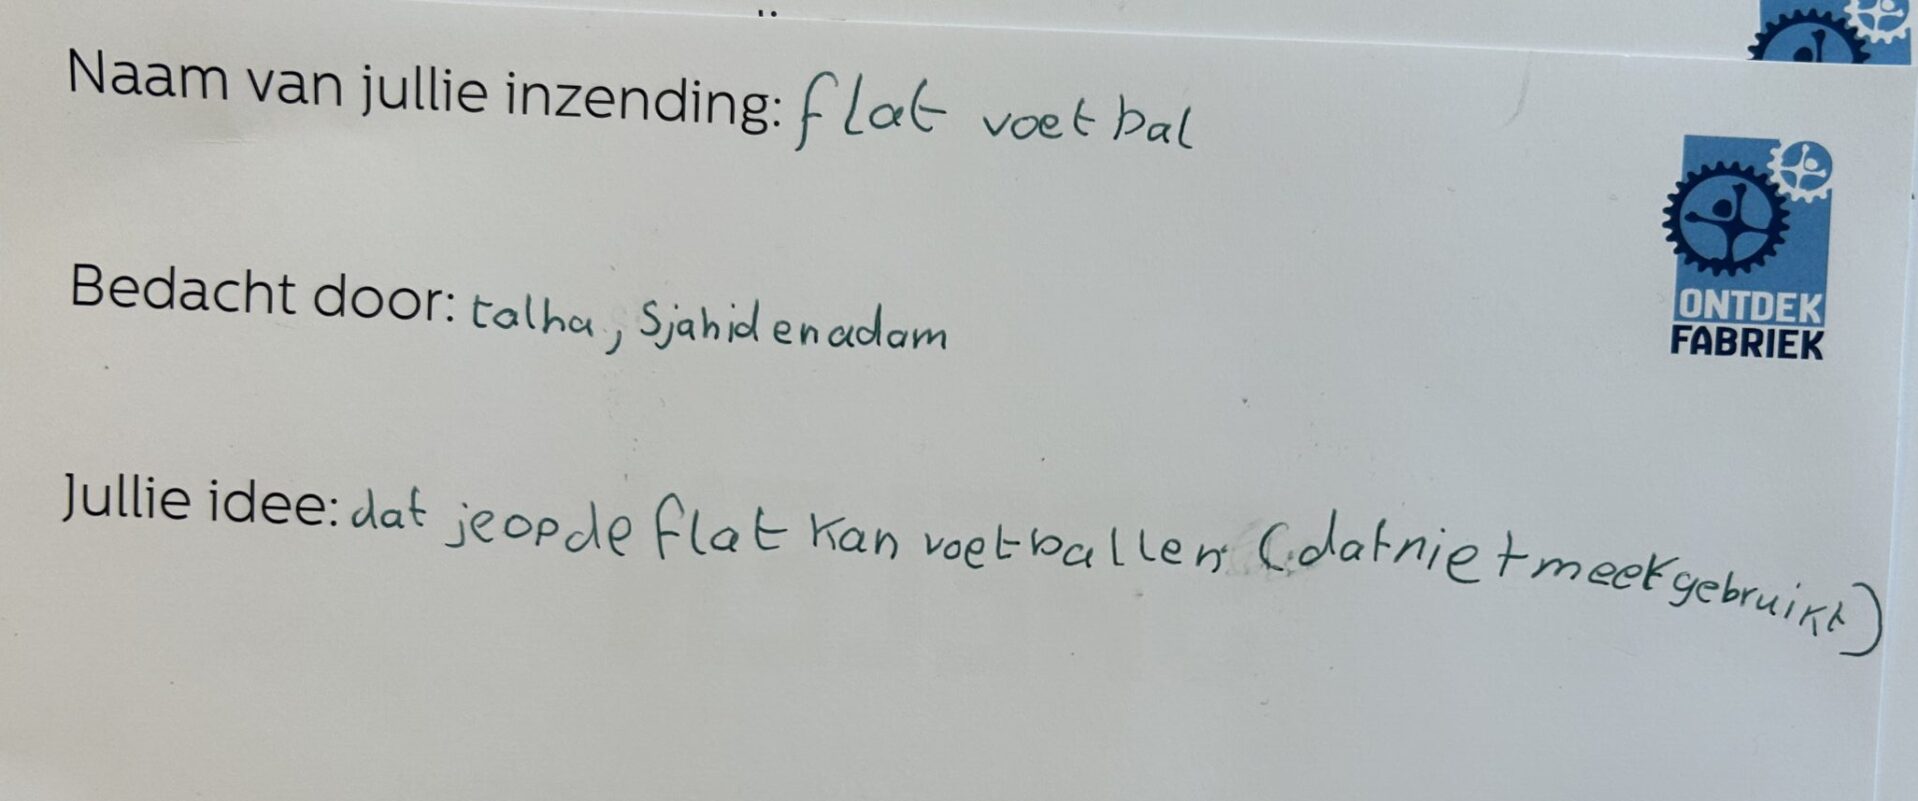 Naam van jullie inzending: flat voetbal
ONTDEK
FABRIEK
Bedacht door: talha, Sjahid en adam
Jullie idee: dat je op de flat kan voetballen (dat niet meer gebruikt)